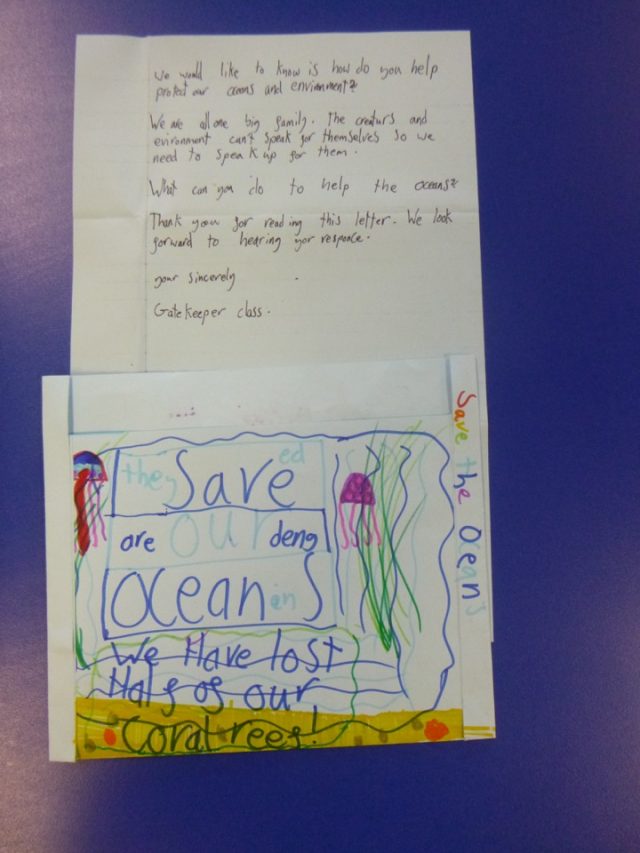 we would like to know is how do you help
protect our oceans and environment?
We are all one big family. The creaturs and
evironment can't speak for themselves so we
need to speak up for them.
What can you do to help the oceans?
Thank yoou for reading this letter. We look
forward to hearing yor responce.
your sincerely
Gatekeeper class.
Save the Oceans
they Save ed
are our deng
Oceans en
We Have lost
Half of our
Coral rees!